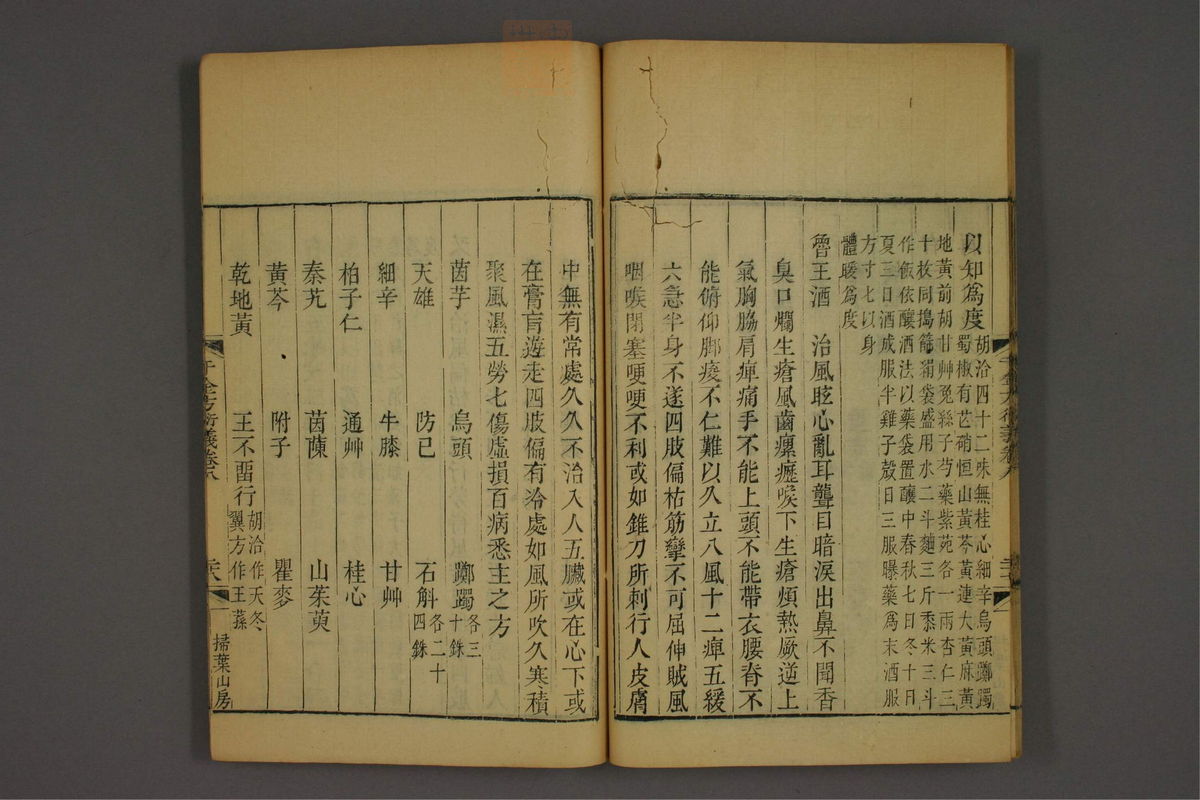 以知為度
胡洽四十二味無桂心細辛烏頭躑躅
蜀椒有芒硝恒山黃芩黃連大黃麻黃
地黃前胡甘艸兔絲子芍藥紫菀各一兩杏仁三
十枚同搗篩袋盛用水二斗麯三斤黍米三斗
作飯依釀酒法以藥袋置釀中春秋七日冬十日
夏三日酒成服半雞子殼日三服曝藥為末酒服
方寸七以身
體暖為度
魯王酒　治風眩心亂耳聾目暗淚出鼻不聞香
臭口爛生瘡風齒瘰癧喉下生瘡煩熱厥逆上
氣胸脇肩痺痛手不能上頭不能帶衣腰脊不
能俯仰脚痠不仁難以久立八風十二痺五緩
六急半身不遂四肢偏枯筋攣不可屈伸賊風
咽喉閉塞哽哽不利或如錐刀所刺行人皮膚
中無有常處久久不治入人五臟或在心下或
在膏肓遊走四肢偏有冷處如風所吹久寒積
聚風濕五勞七傷虛損百病悉主之方
茵芋　烏頭　躑躅各三十銖
天雄　防已　石斛各二十四銖
細辛　牛膝　甘艸
柏子仁　通艸　桂心
秦艽　茵蔯　山茱萸
黃芩　附子　瞿麥
乾地黃　王不畱行胡洽作天冬、翼方作王蓀
千金方衍義卷八
掃葉山房